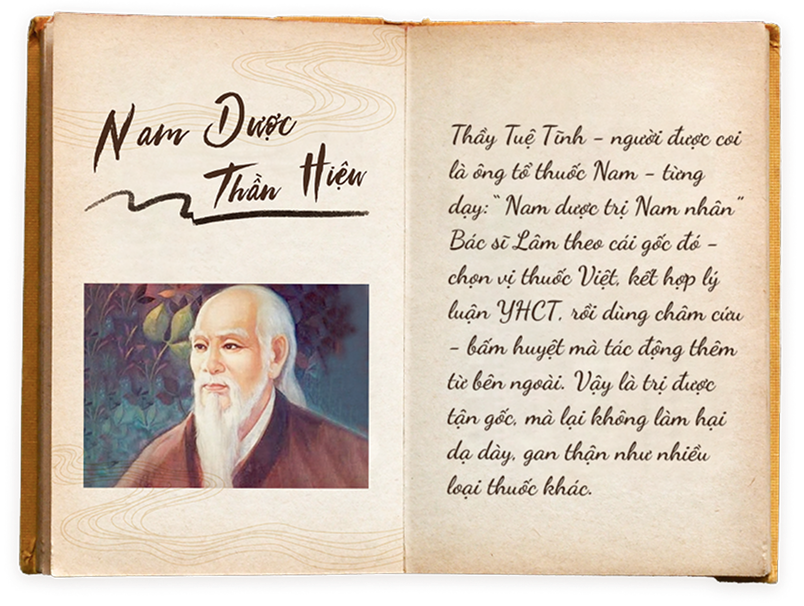 Nam Dược
Thần Hiệu
Thầy Tuệ Tĩnh - người được coi
là ông tổ thuốc Nam - từng
dạy: “ Nam dược trị Nam nhân”
Bác sĩ Lâm theo cái gốc đó -
chọn vị thuốc Việt, kết hợp lý
luận YHCT, rồi dùng châm cứu
- bấm huyệt mà tác động thêm
từ bên ngoài. Vậy là trị được
tận gốc, mà lại không làm hại
dạ dày, gan thận như nhiều
loại thuốc khác.